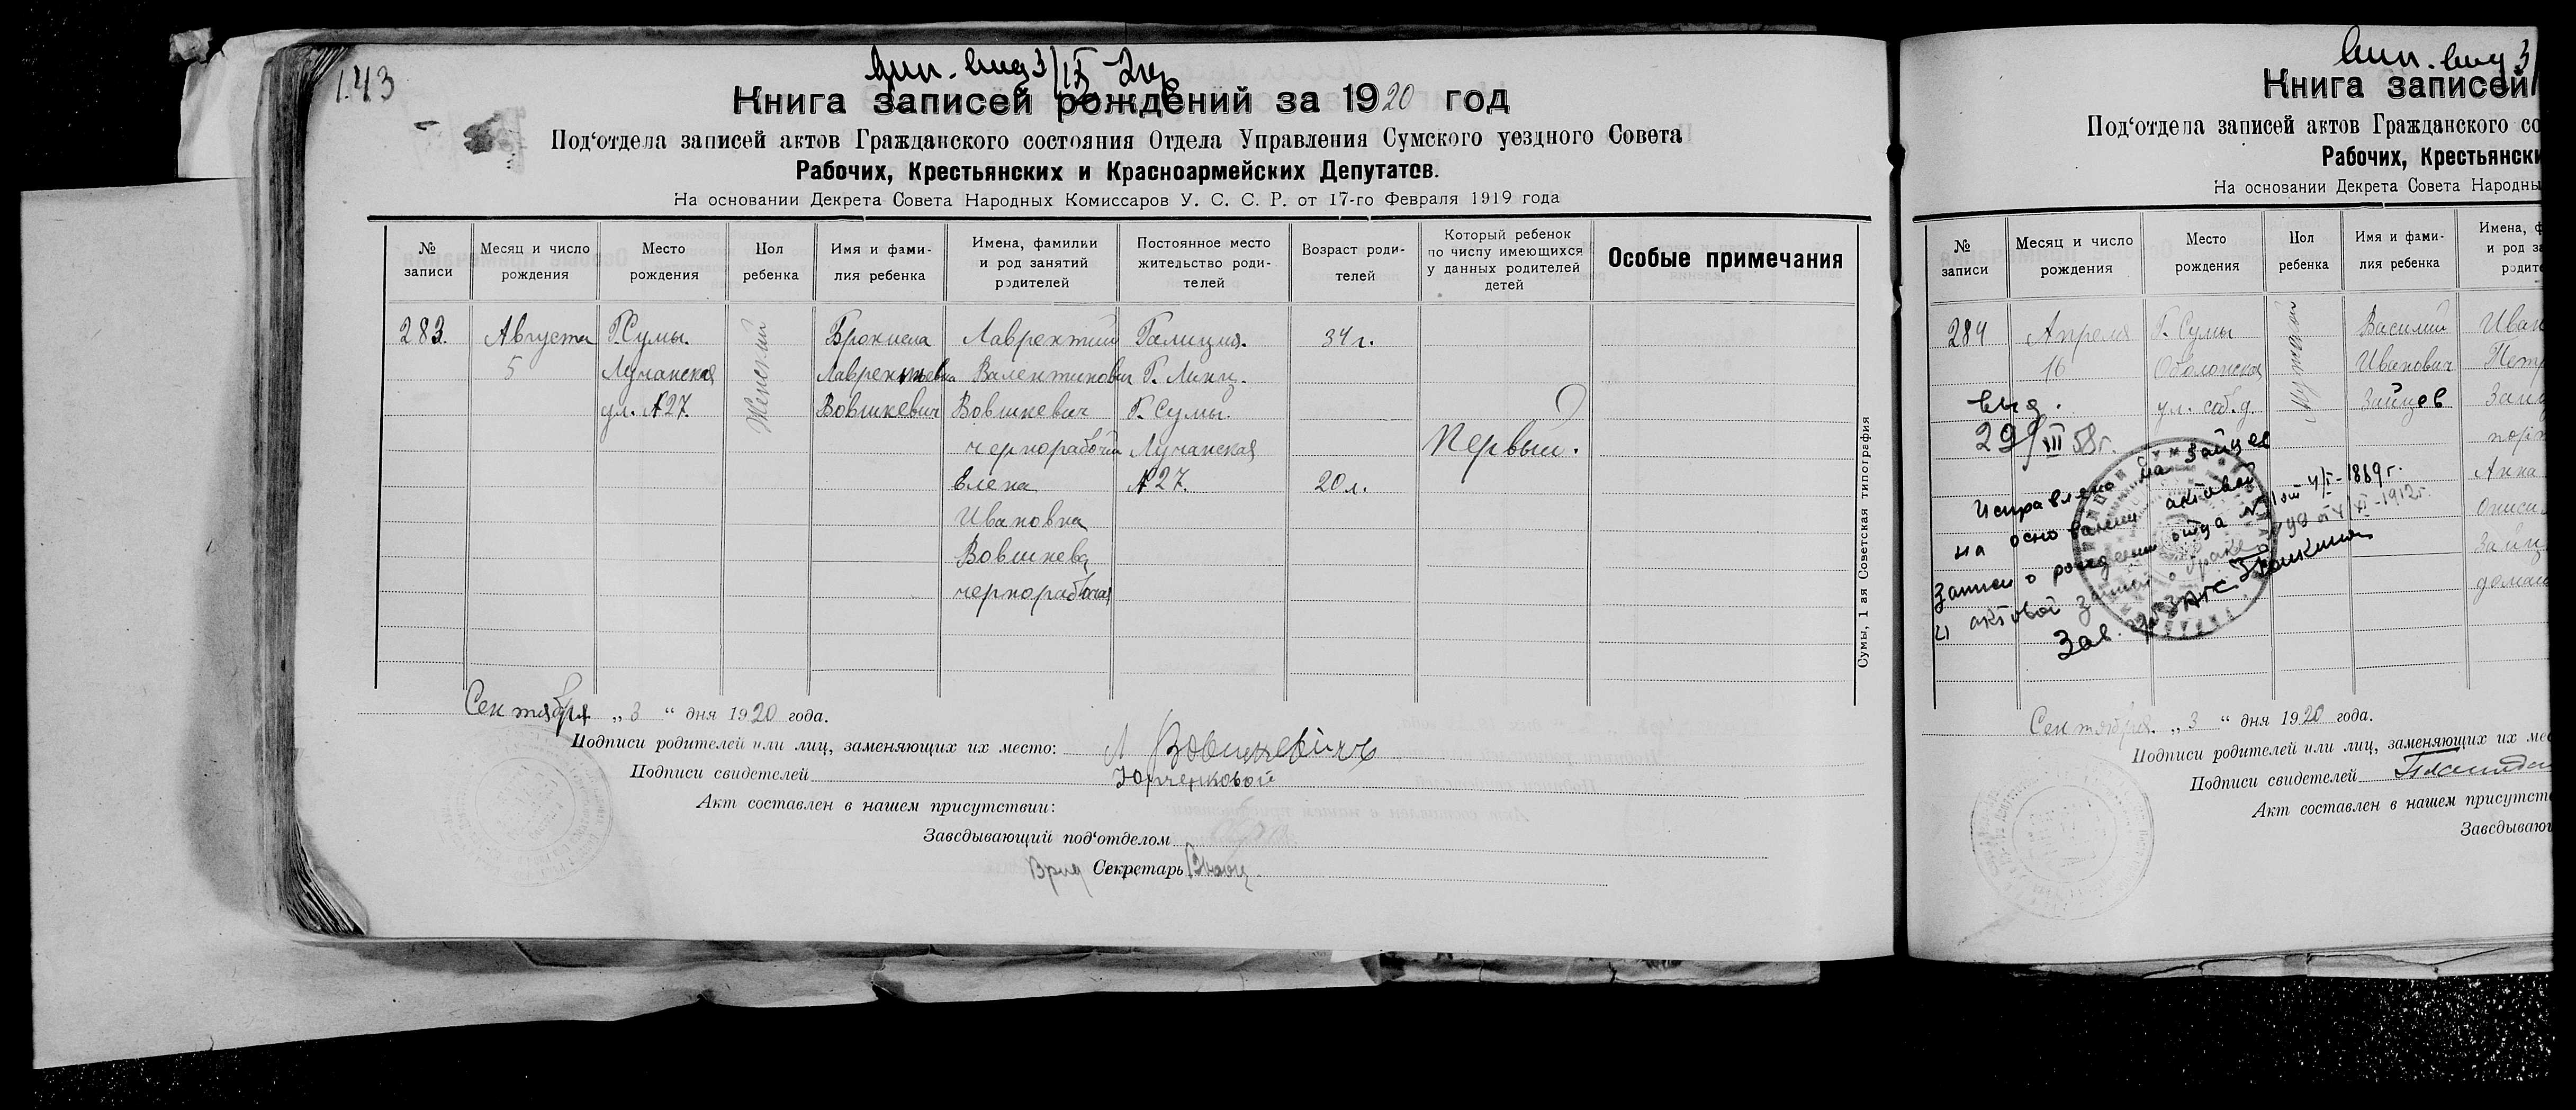 143
Книга записей рождений за 1920 год
Под'отдела записей актов Гражданского состояния Отдела Управления Сумского уездного Совета
Рабочих, Крестьянских и Красноармейских Депутатов.
На основании Декрета Совета Народных Комиссаров У. С. С. Р. от 17-го Февраля 1919 года
№ записи
Месяц и число рождения
Место рождения
Пол ребенка
Имя и фамилия ребенка
Имена, фамилии и род занятий родителей
Постоянное место жительство родителей
Возраст родителей
Который ребенок по числу имеющихся у данных родителей детей
Особые примечания
283.
Августа
5
Г. Сумы.
Лучанская
ул. №27.
Женский
Лаврентьевна
Вовшкевич
Лаврентий
Валентинович
Вовшкевич
чернорабочий
Елена
Ивановна
Вовшкева
чернорабочая
Галиция.
Г. Линц.
Г. Сумы.
Лучанская
№27.
34 г.
20 л.
Первый.
Сумы, 1 ая Советская типография
Сентября „3“ дня 1920 года.
Подписи родителей или лиц, заменяющих их место: Л Вовшкевичъ
Подписи свидетелей
Акт составлен в нашем присутствии:
Заведывающий под'отделом
Врид Секретарь
Книга записей
Под'отдела записей актов Гражданского со
Рабочих, Крестьянски
На основании Декрета Совета Народны
№ записи
Месяц и число рождения
Место рождения
Пол ребенка
Имя и фамилия ребенка
Имена, ф
и род за
родите
284
Апреля
16
Г. Сумы
Оболонская
ул. соб. д.
Мужской
Василий
Иванович
Зайцев
Иван
Петр
Зайц
Анна
Зайц
домаш
выд.
29/III 58г.
Исправлено на Зайцев
на основании актовой
записи о рождении отца № 1 от 4/I-1889г.
и актовой записи о браке от XI-1912г.
Зав. ЗАГС
Сентября „3“ дня 1920 года.
Подписи родителей или лиц, заменяющих их мес
Подписи свидетелей
Акт составлен в нашем присутств
Заведываю